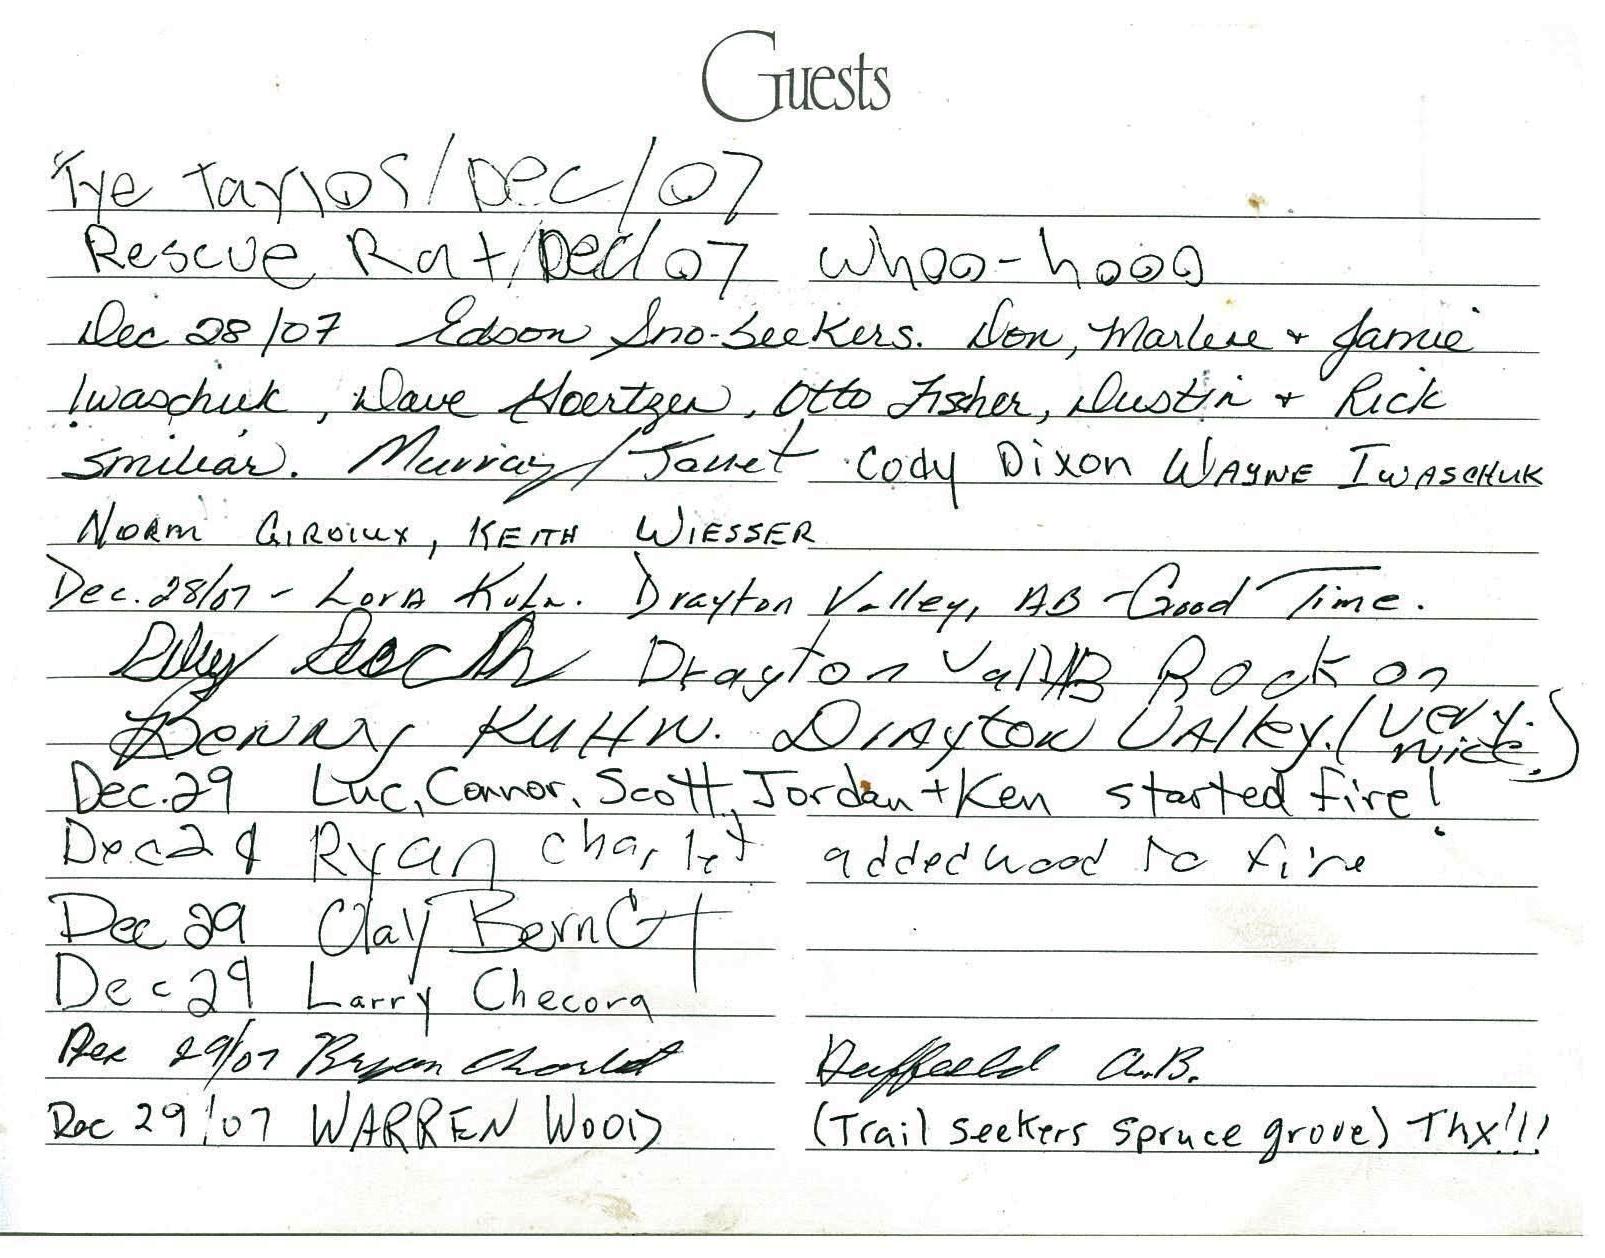 Guests
Tye Taylor/Dec/07
Rescue Rat/Dec/07 whoo-hooo
Dec 28/07 Edson Sno-Seekers. Don, Marlene + Jamie
Iwaschuk, Dave Hoertzen, Otto Fisher, Dustin + Rick
Smiliar. Murray/Janet Cody Dixon WAYNE IWASCHUK
NORM GIROIUX, KEITH WIESSER
Dec. 28/07 - Lora Kuhn. Drayton Valley, AB - Good Time.
Drayton Val AB Rock on
Benny KUHN. DrAyton VAlley. (very nice.)
Dec. 29 Luc, Connor, Scott, Jordan + Ken started fire!
Dec 29 Ryan Charlet added wood to fire
Dec 29 Clay Berndt
Dec 29 Larry Checora
Dec 29/07 Bryan Charlet Duffield A.B.
Dec 29/07 WARREN WOOD (Trail seekers spruce grove) Thx!!!